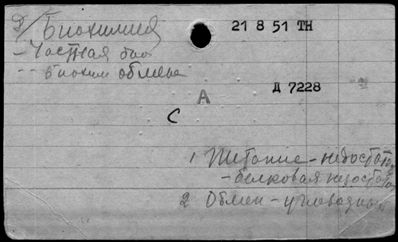 Э/ Биохимия
21 8 51 ТН
- Частная био
-- биохим обмена
А
Д 7228
С
1 Питание - недостат
- белковая недостат
2 Обмен - углеводн